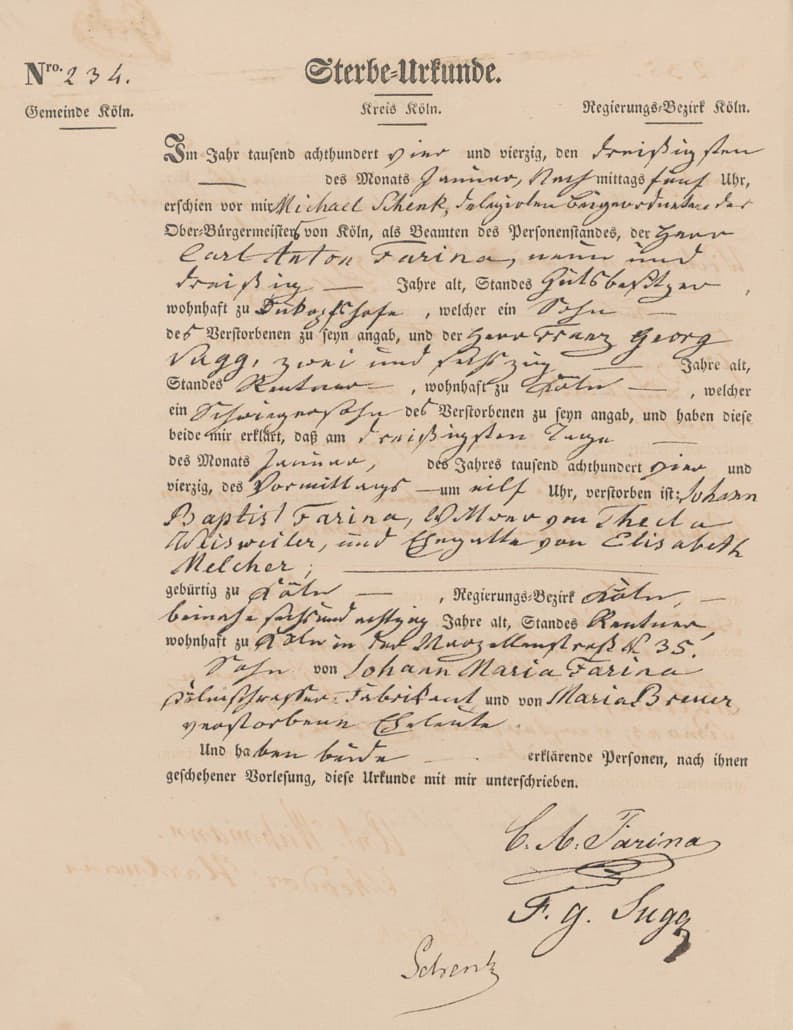 Nro. 234.
Sterbe-Urkunde.
Gemeinde Köln.
Kreis Köln.
Regierungs-Bezirk Köln.
Im Jahr tausend achthundert vier und vierzig, den dreißigsten
— des Monats Januar, Nachmittags fünf Uhr,
erschien vor mir Michael Schenk, delegirten Beigeordneten des
Ober-Bürgermeisters von Köln, als Beamten des Personenstandes, der Herr
Carl Anton Farina, neun und
dreißig — Jahre alt, Standes Gutsbesitzer,
wohnhaft zu , welcher ein Sohn —
des Verstorbenen zu seyn angab, und der Herr Franz Georg
Sugg, zwei und sechszig — Jahre alt,
Standes Rentner —, wohnhaft zu Köln —, welcher
ein Schwiegersohn des Verstorbenen zu seyn angab, und haben diese
beide mir erklärt, daß am dreißigsten Tage —
des Monats Januar, des Jahres tausend achthundert vier und
vierzig, des Vormittags — um eilf Uhr, verstorben ist: Johann
Baptist Farina, Wittwer von Thecla
Weisweiler, und Ehegatte von Elisabeth
Melcher; —
gebürtig zu Köln —, Regierungs-Bezirk Köln, —
beinahe sechsundachtzig Jahre alt, Standes Rentner,
wohnhaft zu Köln in der Marzellenstraß N. 35.
Sohn von Johann Maria Farina
Fabrikant und von Maria Breuer
verstorbene Eheleute.
Und haben beide — erklärende Personen, nach ihnen
geschehener Vorlesung, diese Urkunde mit mir unterschrieben.
C. A. Farina
F. G. Sugg
Schenk